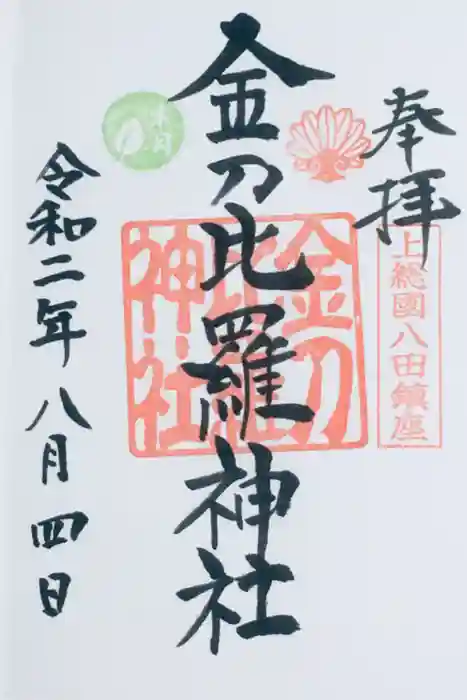 奉拝
上総國八田鎮座
金刀比羅神社
金刀比羅神社
令和二年八月四日